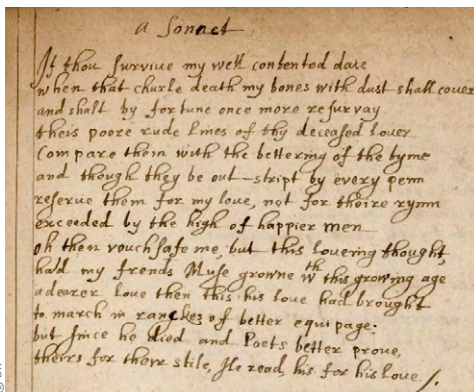 A Sonnet
If thou survive my well contented daie
when that churle death my bones with dust shall cover
and shalt by fortune once more resurvay
theis poore rude lines of thy deceased lover
Compare them with the bettering of the tyme
and though they be out-stript by every penn
reserve them for my love, not for theire rymn
exceeded by the high of happier men
oh then vouchsafe me, but this loveing thought,
hald my frends Muse growne wth this growing age
a dearer love then this his love had brought
to march in ranckes of better equipage:
but since he died and Poets better prove,
theirs for their stile, Ile read, his for his love /.